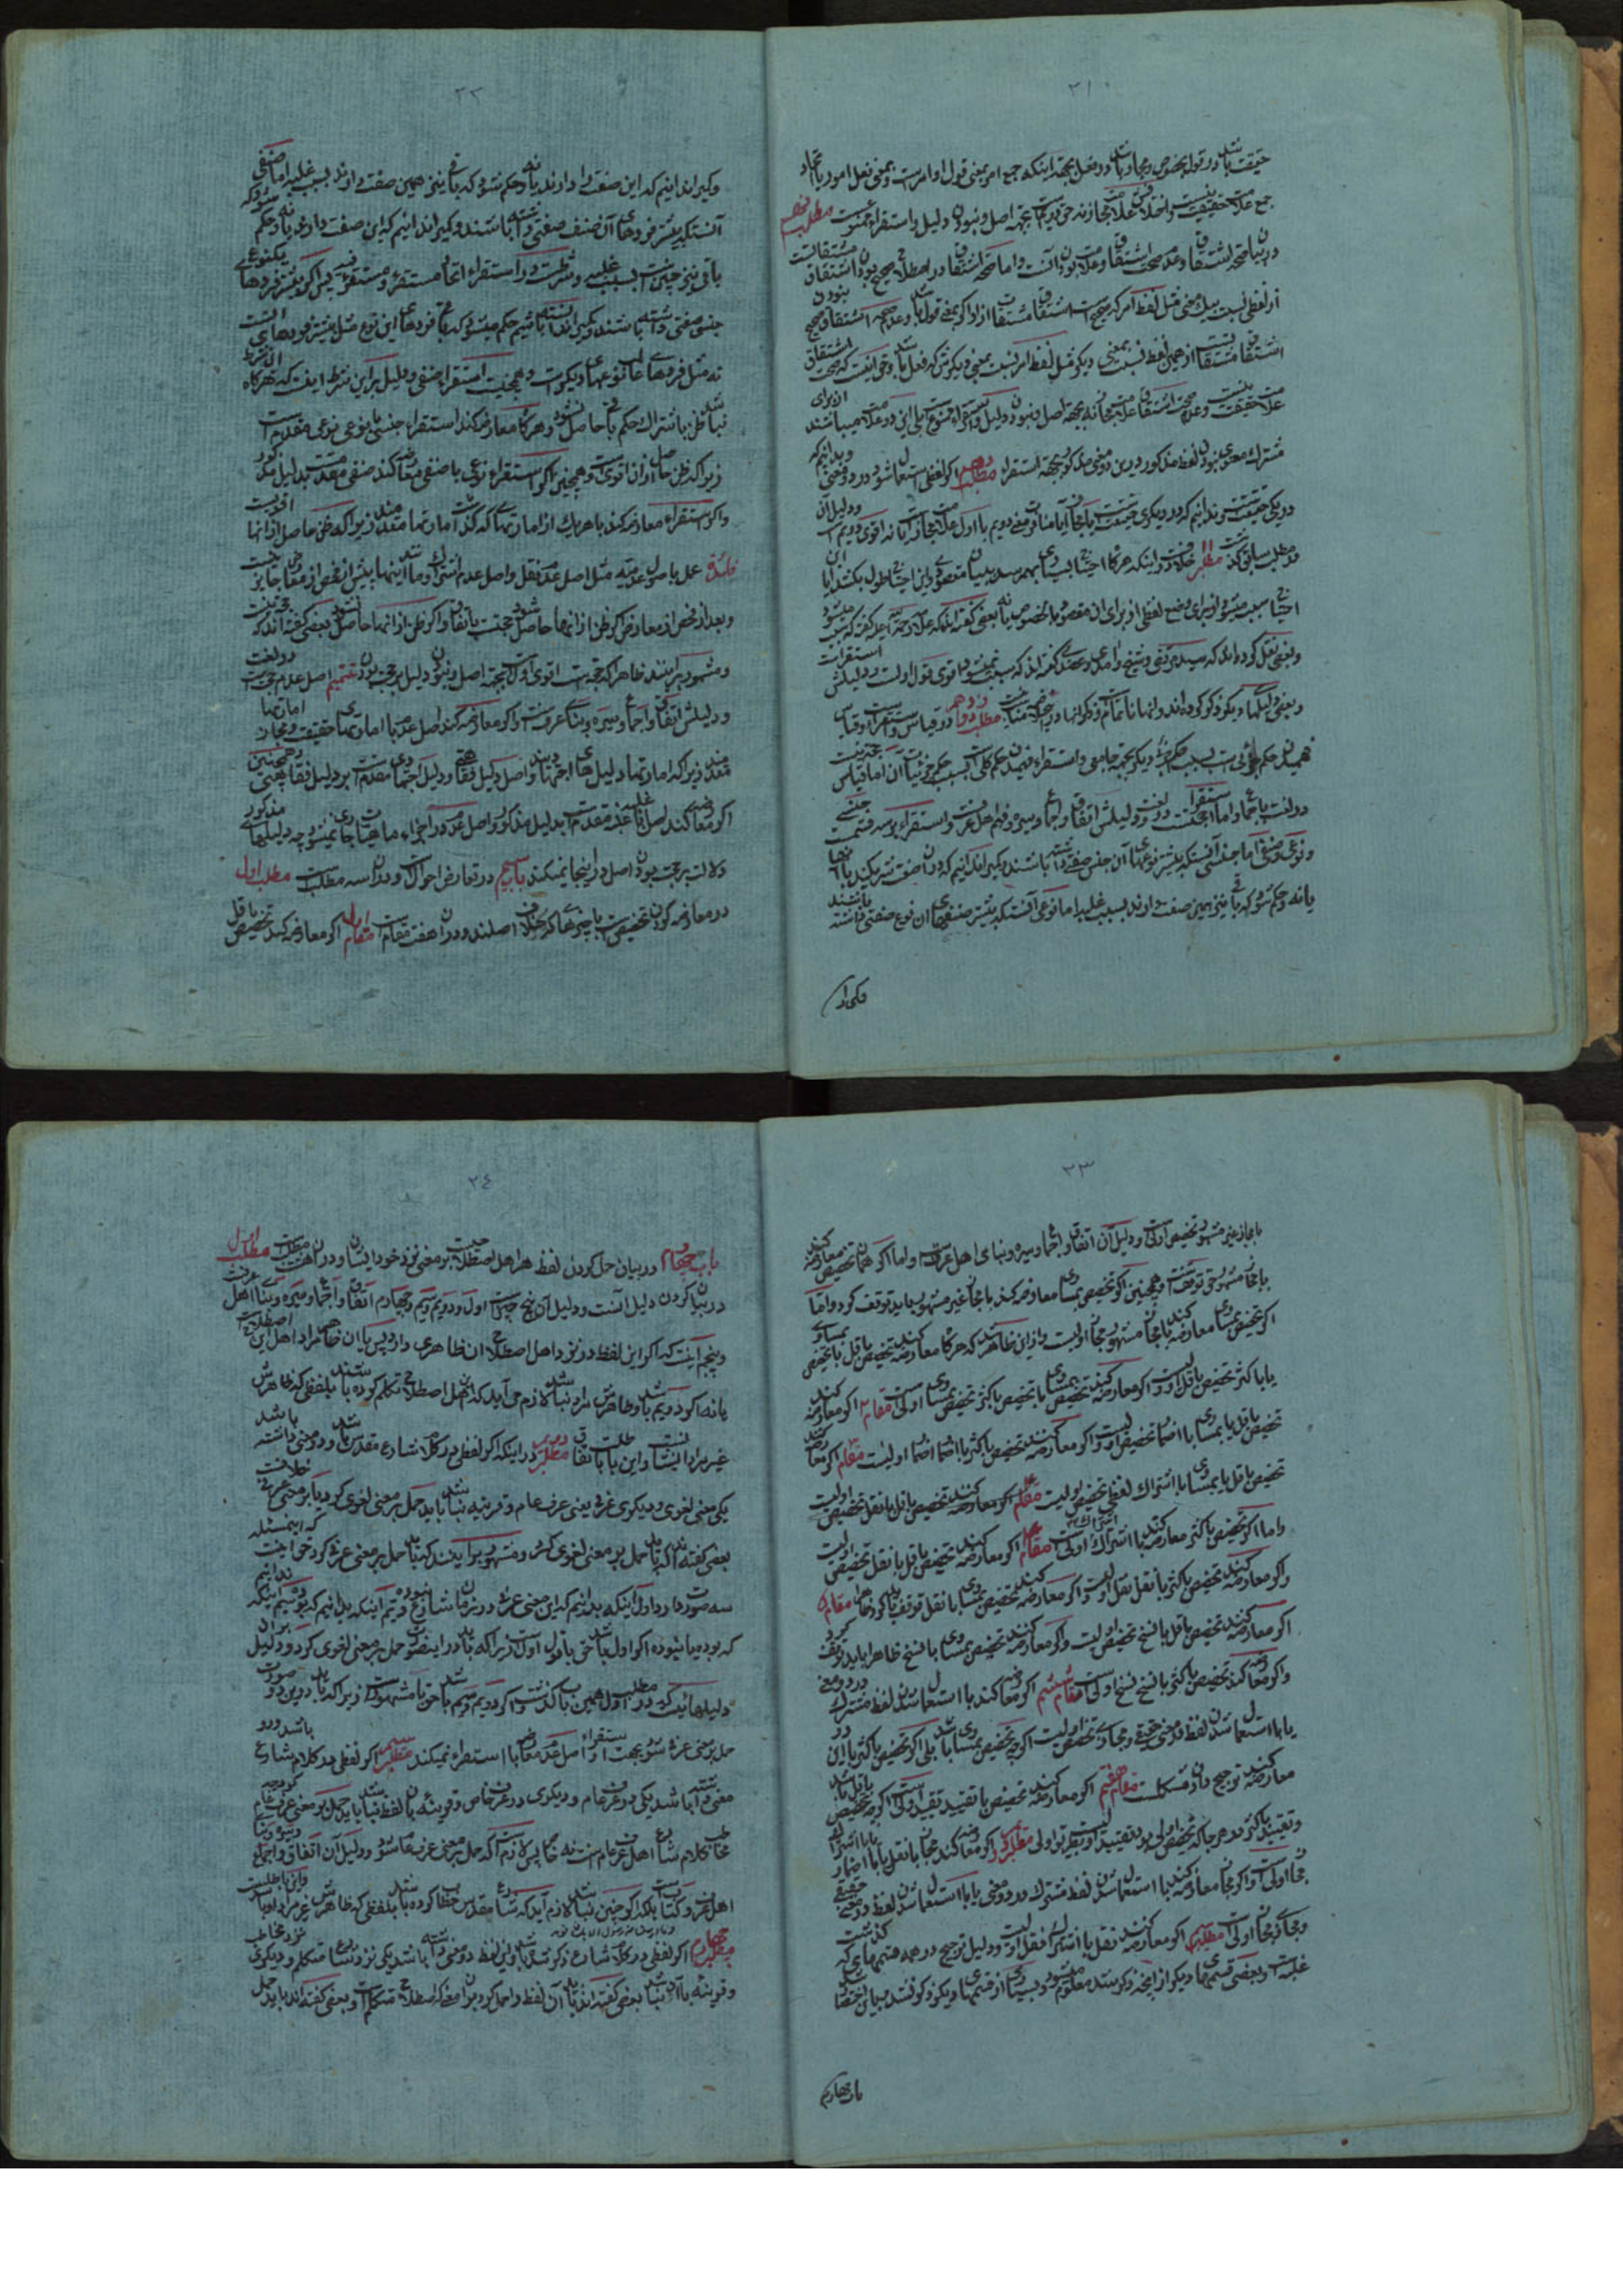 ۲۱
حقیقت باشد در قول بخصوص و مجاز باشد در فعل بجهة اینکه جمع امر بمعنی قول اوامر است و بمعنی فعل امور
جمع علامت حقیقت است و اختلاف علامت مجاز نه بجهة اصل و نبودن دلیل و استقراء ممنوعست مطلب نهم
در بیان صحة اشتقاق و عدم صحت اشتقاق
از لفظی نسبت بیک معنی مثل لفظ امر که صحیح است اشتقاق مشتقات از او اگر بمعنی قول باشد و عدم صحة اشتقاق
اشتقاق مشتقات از همین لفظ نسبت بمعنی دیگر مثل لفظ امر نسبت بمعنی دیگرش که فعل باشد و حق اینست که صحت اشتقاق
علامت حقیقت نیست و عدم صحت اشتقاق علامت مجاز نه بجهة اصل و نبودن دلیل و استقراء ممنوع است بلی این دو علامت میباشند از برای
مشترک معنوی نبودن لفظ مذکور در بین دو معنی مذکور بجهة استقراء مطلب دهم اگر لفظی استعمال شود در دو معنی و بدانیم که
در یکی حقیقت است و ندانیم که در دیگری حقیقت است یا مجاز
در مطلب سابق گذشت مطلب ۱۱ خلاف در اینکه هرگاه احتیاج بسیار بهم رسد به بیان مقصودی و این احتیاج طول بکشد آیا این
احتیاج سبب میشود از برای وضع لفظی از برای آن مقصود بالخصوص یا نه بعضی گفته اند که
و بعضی نقل کرده اند که سید مرتضی و شیخ و آمدی و عضدی گفته اند که سبب نمیشود و اقوی قول اولست و دلیلش استقراست
و بعضی دلیلها دیگر ذکر کرده اند و آنها ناتمام مطلب دوازدهم در قیاس و استقراء
فهمیدن حکم جزئی است بسبب حکم جزئی دیگر بجهة جامعی و استقراء فهمیدن حکم کلی است بسبب حکم جزئیات آن اما قیاس حجة نیست
در لغت باجماع و اما استقراء حجت است در لغت و دلیلش اتفاق و اجماع و سیره و فهم اهل عرفست و استقراء بر سه قسمست جنسی
و نوعی و صنفی اما جنسی آنستکه بیشتر نوعهای آن جنس صفتی داشته باشند و یکی را ندانیم که در آن صفت شریکند با آنها
یا نه و حکم شود که باقی نیز همین صفت دارند بسبب غلبه اما نوعی آنستکه بیشتر صنفهای آن نوع صفتی داشته باشند
و یکی را
۲۲
و یکی را ندانیم که این صفت را دارند یا نه و حکم شود که باقی نیز همین صفت دارند بسبب غلبه اما صنفی
آنستکه بیشتر فردهای آن صنف صفتی داشته باشند و یکی را ندانیم که این صفت دارد یا نه و حکم شود که
باقی نیز چنین است بسبب غلبه و شرطست در استقراء اتحاد مستقرء و مستقرء فیه پس اگر بیشتر فردهای یک نوع
جنسی صفتی داشته باشند و یکی را ندانسته باشیم حکم میشود که باقی فردهای این نوع مثل بیشتر فردهای آنست
نه مثل فردهای غالب نوعهای دیگر است و همچنین است استقراء صنفی و دلیل بر این شرط اینست که هرگاه این شرط
نباشد ظن باشتراک حکم باقی حاصل نشود و هرگاه معارضه کند استقراء جنسی با نوعی نوعی مقدم است
زیرا که ظن حاصل از آن اقوی است و همچنین اگر استقراء نوعی با صنفی معارضه کند صنفی مقدمست بدلیل مذکور
و اگر استقراء معارضه کند با هر یک از امارتهائی که گذشت امارتها مقدمند زیرا که ظن حاصل از آنها اقویست
فایده عمل باصول عدمیه مثل اصل عدم نقل و اصل عدم اشتراک و مانند اینها پیش از فحص از معارض جایز نیست
و بعد از فحص از معارض اگر ظن از آنها حاصل شود حجت است باتفاق و اگر ظن از آنها حاصل نشود بعضی گفته اند که حجة نیست
و مشهور برآنند ظاهرا که حجت است اقوی اول است بجهة اصل و نبودن دلیل بر حجت بودن تتمیم اصل عدم حجت است در لغت
و دلیلش اتفاق و اجماع و سیره و بنای عرف است و اگر معارضه کند اصل عدم با امارتهای حقیقت و مجاز امارتها
مقدمند زیرا که امارتها دلیل های اجتهادیند و اصل دلیل فقاهتی و دلیل اجتهادی مقدم است بر دلیل فقاهتی و همچنین
اگر معارضه کند اصل با غلبه غلبه مقدم است بدلیل مذکور و اصل عدم در اجزاء ماهیات جاری نمیشود چه دلیلهای مذکور
دلالت بر حجت بودن اصل در اینجا نمیکند باب سیم در تعارض احوال و در آن سه مطلب است مطلب اول
در معارضه کردن تخصیص است با چیزهائی که خلاف اصلند و در آن هفت مقام است مقام اول اگر معارضه کند تخصیص باقل
۲۳
با مجاز غیر مشهور تخصیص اولی است و دلیل آن اتفاق و اجماع و سیره و بنای اهل عرفست و اما اگر همان تخصیص معارضه کند
با مجاز مشهور حق توقفست و همچنین اگر تخصیص بمساوی معارضه کند با مجاز غیر مشهور باید توقف کرد و اما
اگر تخصیص بمساوی معارضه کند با مجاز مشهور مجاز اولیست و از این ظاهر شد که هرگاه معارضه کند تخصیص باقل با تخصیص بمساوی
یا باکثر تخصیص باقل اولیست و اگر معارضه کند تخصیص بمساوی با تخصیص باکثر تخصیص بمساوی اولی است مقام ۲ اگر معارضه کند
تخصیص باقل یا بمساوی با اضمار تخصیص اولیست و اگر معارضه کند تخصیص باکثر با اضمار اضمار اولیست مقام ۳ اگر معارضه کند
تخصیص باقل یا بمساوی با اشتراک لفظی تخصیص اولیست مقام ۴ اگر معارضه کند تخصیص باقل با نقل تخصیص اولیست
و اما اگر تخصیص باکثر معارضه کند با اشتراک اشتراک اولی است مقام ۴ اگر معارضه کند تخصیص باقل با نقل تخصیص اولیست
و اگر معارضه کند تخصیص باکثر با نقل نقل اولیست و اگر معارضه کند تخصیص بمساوی با نقل توقف باید کرد ظاهرا مقام ۵
اگر معارضه کند تخصیص باقل با نسخ تخصیص اولیست و اگر معارضه کند تخصیص بمساوی با نسخ ظاهرا باید توقف کرد
و اگر معارضه کند تخصیص باکثر با نسخ نسخ اولی است مقام ششم اگر معارضه کند با استعمال شدن لفظ مشترک در دو معنی
یا با استعمال شدن لفظ در معنی حقیقی و مجازی تخصیص اولیست اگرچه تخصیص بمساوی باشد بلی اگر تخصیص باکثر با این دو
معارضه کند ترجیح دادن مشکلست مقام هفتم اگر معارضه کند تخصیص با تقیید تقیید اولی است اگرچه تخصیص باقل باشد
و تقیید باکثر و هر جا که تخصیص اولی بود تقیید اولیست بطریق اولی مطلب ۲ اگر معارضه کند مجاز با نقل یا با اضمار یا با اشتراک
مجاز اولی است و اگر مجاز معارضه کند با استعمال شدن لفظ مشترک در دو معنی یا با استعمال شدن لفظ در معنی حقیقی
و مجازی مجاز اولی است مطلب ۳ اگر معارضه کند نقل با اشتراک نقل اولیست و دلیل ترجیح در همه قسم های که گذشت
غلبه است و بعضی قسمهای دیگر از آنچه ذکر شد معلوم میشود و بسیاری از قسمهای دیگر ذکر نشد برای اختصار
باب چهارم
۲۴
باب چهارم در بیان حمل کردن لفظ هر اهل اصطلاحیست بر معنی نزد خود ایشان و در آن هفت مطلبست مطلب اول
در بیان کردن دلیل آنست و دلیل آن پنج چیز است اول و دویم و سیم و چهارم اتفاق و اجماع و سیره و بنای اهل عرفست
و پنجم آنست که اگر این لفظ در نزد اهل اصطلاح آن ظاهری دارد پس یا آن ظاهر مراد اهل این اصطلاح است
یا نه اگر دویم باشد و ظاهرش مراد نباشد لازم می آید که آن اهل اصطلاح تکلم کرده باشند بلفظی که ظاهرش
غیر مراد ایشانست و این باطلست باتفاق مطلب دویم در اینکه اگر لفظی در کلام شارع مقدس باشد و دو معنی داشته باشد
یکی معنی لغوی و دیگری عرفی یعنی عرف عام و قرینه نباشد باید حمل بر معنی لغوی کرد یا بر معنی عرفی خلافست
بعضی گفته اند که باید حمل بر معنی لغوی کرد و مشهور برآنند که باید حمل بر معنی عرفی کرد و حق اینست که این مسئله
سه صورت دارد اول اینکه بدانیم که این معنی عرفی در زمان شارع نبوده دویم آنکه بدانیم که بوده سیم اینکه ندانیم
که بوده یا نبوده اگر اول باشد حق با قول اول است زیرا که باید در اینصورت حمل بر معنی لغوی کرد و دلیل بر آن
دلیلهائیست که در مطلب اول همین باب گذشت و اگر دویم و سیم باشد حق با مشهور است زیرا که باید در این دو صورت
حمل بر معنی عرفی شود بجهت استقراء و اصل عدم معارضه با استقراء نمیکند مطلب سیم اگر لفظی در کلام شارع باشد و دو
معنی داشته باشد یکی در عرف عام و دیگری در عرف خاص و قرینه با آن لفظ نباشد باید حمل بر معنی عرف عام کرد چه
مخاطب کلام شارع اهل عرف عام است نه خاص پس لازم است که حمل بر معنی عرف عام شود و دلیل آن اتفاق و اجماع و سیره و بنای
اهل عرف و کتاب است بلکه اگر چنین نباشد لازم آید که شارع مقدس خطاب کرده باشد بلفظی که ظاهرش غیر مراد او باشد و این باطلست
مطلب چهارم اگر لفظی در کلام شارع ذکر شده باشد و این لفظ دو معنی داشته باشد یکی نزد شارع متکلم و دیگری نزد مخاطب
و قرینه با آن نباشد بعضی گفته اند باید آن لفظ را حمل کرد بر آن معنی که اصطلاح متکلم است و بعضی گفته اند باید حمل